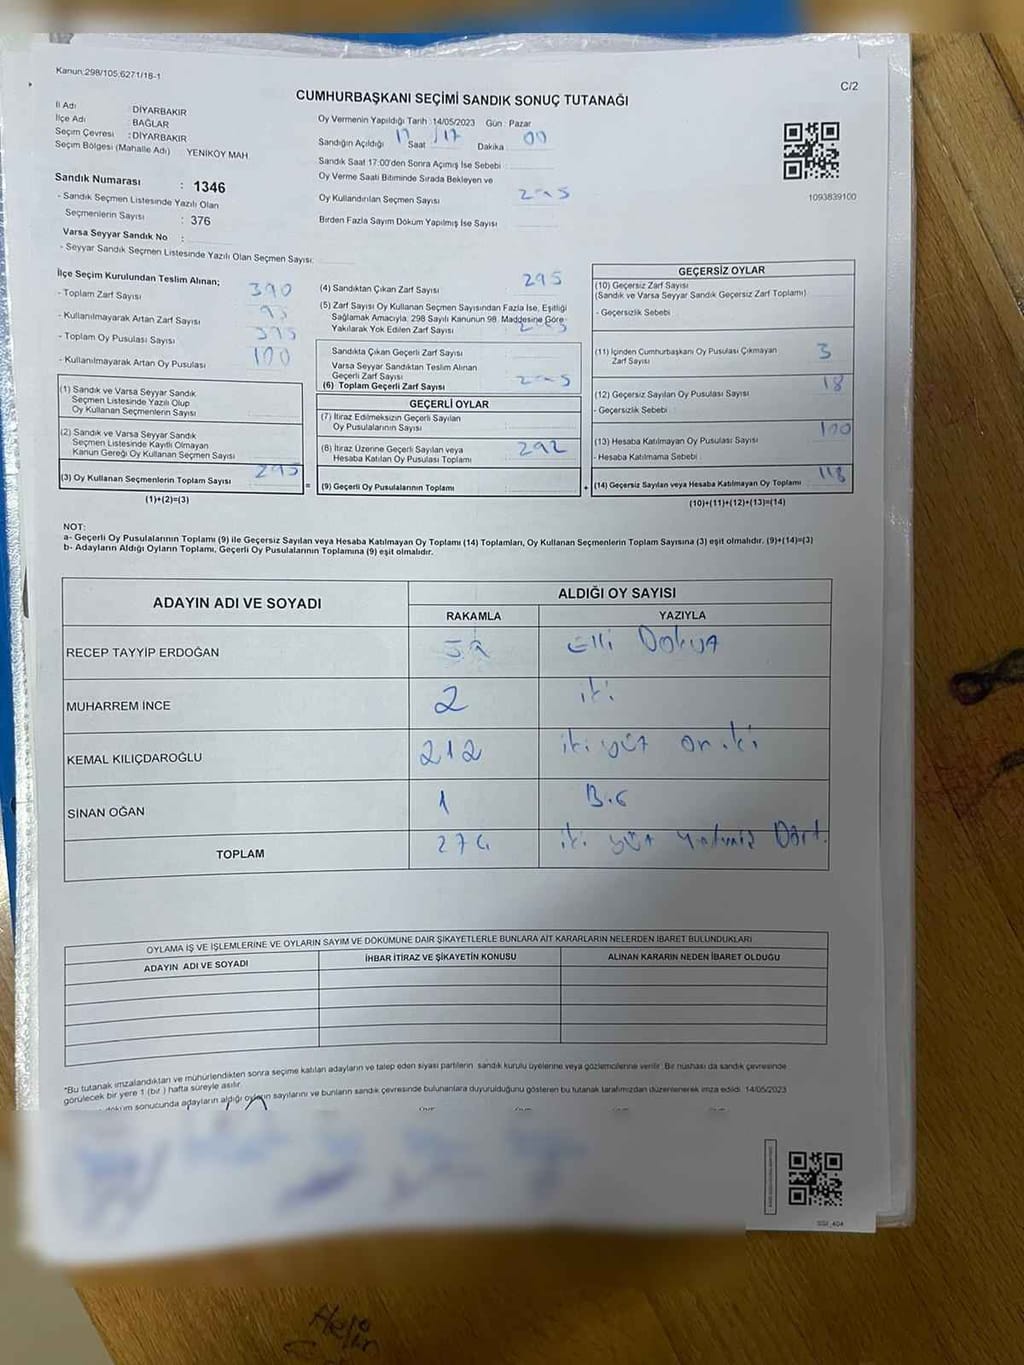 Kanun:298/105;6271/18-1
C/2
CUMHURBAŞKANI SEÇİMİ SANDIK SONUÇ TUTANAĞI
İl Adı DİYARBAKIR
İlçe Adı BAĞLAR
Seçim Çevresi : DİYARBAKIR
Seçim Bölgesi (Mahalle Adı) YENİKÖY MAH.
Oy Vermenin Yapıldığı Tarih :14/05/2023 Gün : Pazar
Sandığın Açıldığı 17 Saat 17 Dakika 00
Sandık Saat 17:00'den Sonra Açımış İse Sebebi :
Oy Verme Saati Bitiminde Sırada Bekleyen ve
Oy Kullandırılan Seçmen Sayısı 295
Birden Fazla Sayım Döküm Yapılmış İse Sayısı
1093839100
Sandık Numarası : 1346
- Sandık Seçmen Listesinde Yazılı Olan
Seçmenlerin Sayısı : 376
Varsa Seyyar Sandık No :
- Seyyar Sandık Seçmen Listesinde Yazılı Olan Seçmen Sayısı:
İlçe Seçim Kurulundan Teslim Alınan;
- Toplam Zarf Sayısı 390
- Kullanılmayarak Artan Zarf Sayısı 95
- Toplam Oy Pusulası Sayısı 395
- Kullanılmayarak Artan Oy Pusulası 100
(1) Sandık ve Varsa Seyyar Sandık
Seçmen Listesinde Yazılı Olup
Oy Kullanan Seçmenlerin Sayısı
(2) Sandık ve Varsa Seyyar Sandık
Seçmen Listesinde Kayıtlı Olmayan
Kanun Gereği Oy Kullanan Seçmen Sayısı
(3) Oy Kullanan Seçmenlerin Toplam Sayısı 295
(1)+(2)=(3)
(4) Sandıktan Çıkan Zarf Sayısı 295
(5) Zarf Sayısı Oy Kullanan Seçmen Sayısından Fazla İse, Eşitliği
Sağlamak Amacıyla, 298 Sayılı Kanunun 98. Maddesine Göre
Yakılarak Yok Edilen Zarf Sayısı 295
Sandıkta Çıkan Geçerli Zarf Sayısı
Varsa Seyyar Sandıktan Teslim Alınan
Geçerli Zarf Sayısı
(6) Toplam Geçerli Zarf Sayısı 295
GEÇERLİ OYLAR
(7) İtiraz Edilmeksizin Geçerli Sayılan
Oy Pusulalarının Sayısı
(8) İtiraz Üzerine Geçerli Sayılan veya
Hesaba Katılan Oy Pusulası Toplamı 292
= (9) Geçerli Oy Pusulalarının Toplamı
GEÇERSİZ OYLAR
(10) Geçersiz Zarf Sayısı
(Sandık ve Varsa Seyyar Sandık Geçersiz Zarf Toplamı)
- Geçersizlik Sebebi
(11) İçinden Cumhurbaşkanı Oy Pusulası Çıkmayan
Zarf Sayısı 3
(12) Geçersiz Sayılan Oy Pusulası Sayısı 18
- Geçersizlik Sebebi
(13) Hesaba Katılmayan Oy Pusulası Sayısı 100
- Hesaba Katılmama Sebebi
+ (14) Geçersiz Sayılan veya Hesaba Katılmayan Oy Toplamı 118
(10)+(11)+(12)+(13)=(14)
NOT:
a- Geçerli Oy Pusulalarının Toplamı (9) ile Geçersiz Sayılan veya Hesaba Katılmayan Oy Toplamı (14) Toplamları, Oy Kullanan Seçmenlerin Toplam Sayısına (3) eşit olmalıdır. (9)+(14)=(3)
b- Adayların Aldığı Oyların Toplamı, Geçerli Oy Pusulalarının Toplamına (9) eşit olmalıdır.
ADAYIN ADI VE SOYADI
ALDIĞI OY SAYISI
RAKAMLA YAZIYLA
RECEP TAYYİP ERDOĞAN 59 Elli Dokuz
MUHARREM İNCE 2 iki
KEMAL KILIÇDAROĞLU 212 iki yüz on iki
SİNAN OĞAN 1 Bir
TOPLAM 274 iki yüz yetmiş Dört
OYLAMA İŞ VE İŞLEMLERİNE VE OYLARIN SAYIM VE DÖKÜMÜNE DAİR ŞİKAYETLERLE BUNLARA AİT KARARLARIN NELERDEN İBARET BULUNDUKLARI
ADAYIN ADI VE SOYADI İHBAR İTİRAZ VE ŞİKAYETİN KONUSU ALINAN KARARIN NEDEN İBARET OLDUĞU
*Bu tutanak imzalandıktan ve mühürlendikten sonra seçime katılan adayların ve talep eden siyasi partilerin sandık kurulu üyelerine veya gözlemcilerine verilir. Bir nüshası da sandık çevresinde
görülecek bir yere 1 (bir ) hafta süreyle asılır.
döküm sonucunda adayların aldığı oyların sayılarını ve bunların sandık çevresinde bulunanlara duyurulduğunu gösteren bu tutanak tarafımızdan düzenlenerek imza edildi. 14/05/2023
SGI_404
Helin